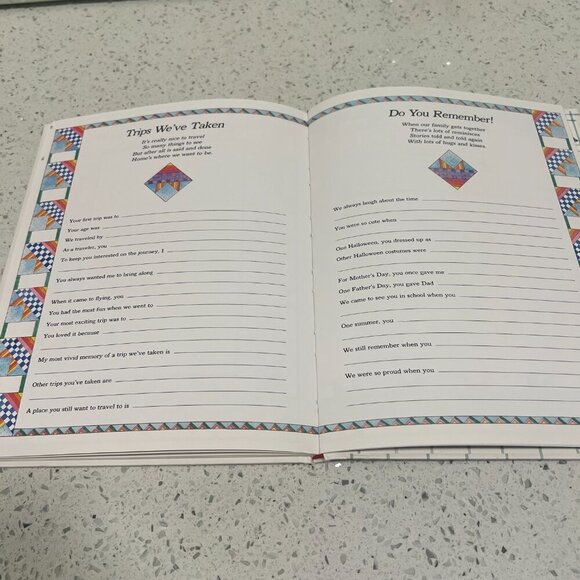 Trips We've Taken
It's really nice to travel
So many things to see
But after all is said and done
Home's where we want to be.
Your first trip was to
Your age was
We traveled by
As a traveler, you
To keep you interested on the journey, I
You always wanted me to bring along
When it came to flying, you
You had the most fun when we went to
Your most exciting trip was to
You loved it because
My most vivid memory of a trip we've taken is
Other trips you've taken are
A place you still want to travel to is
Do You Remember!
When our family gets together
There's lots of reminisces
Stories told and told again
With lots of hugs and kisses.
We always laugh about the time
You were so cute when
One Halloween, you dressed up as
Other Halloween costumes were
For Mother's Day, you once gave me
One Father's Day, you gave Dad
We came to see you in school when you
One summer, you
We still remember when you
We were so proud when you